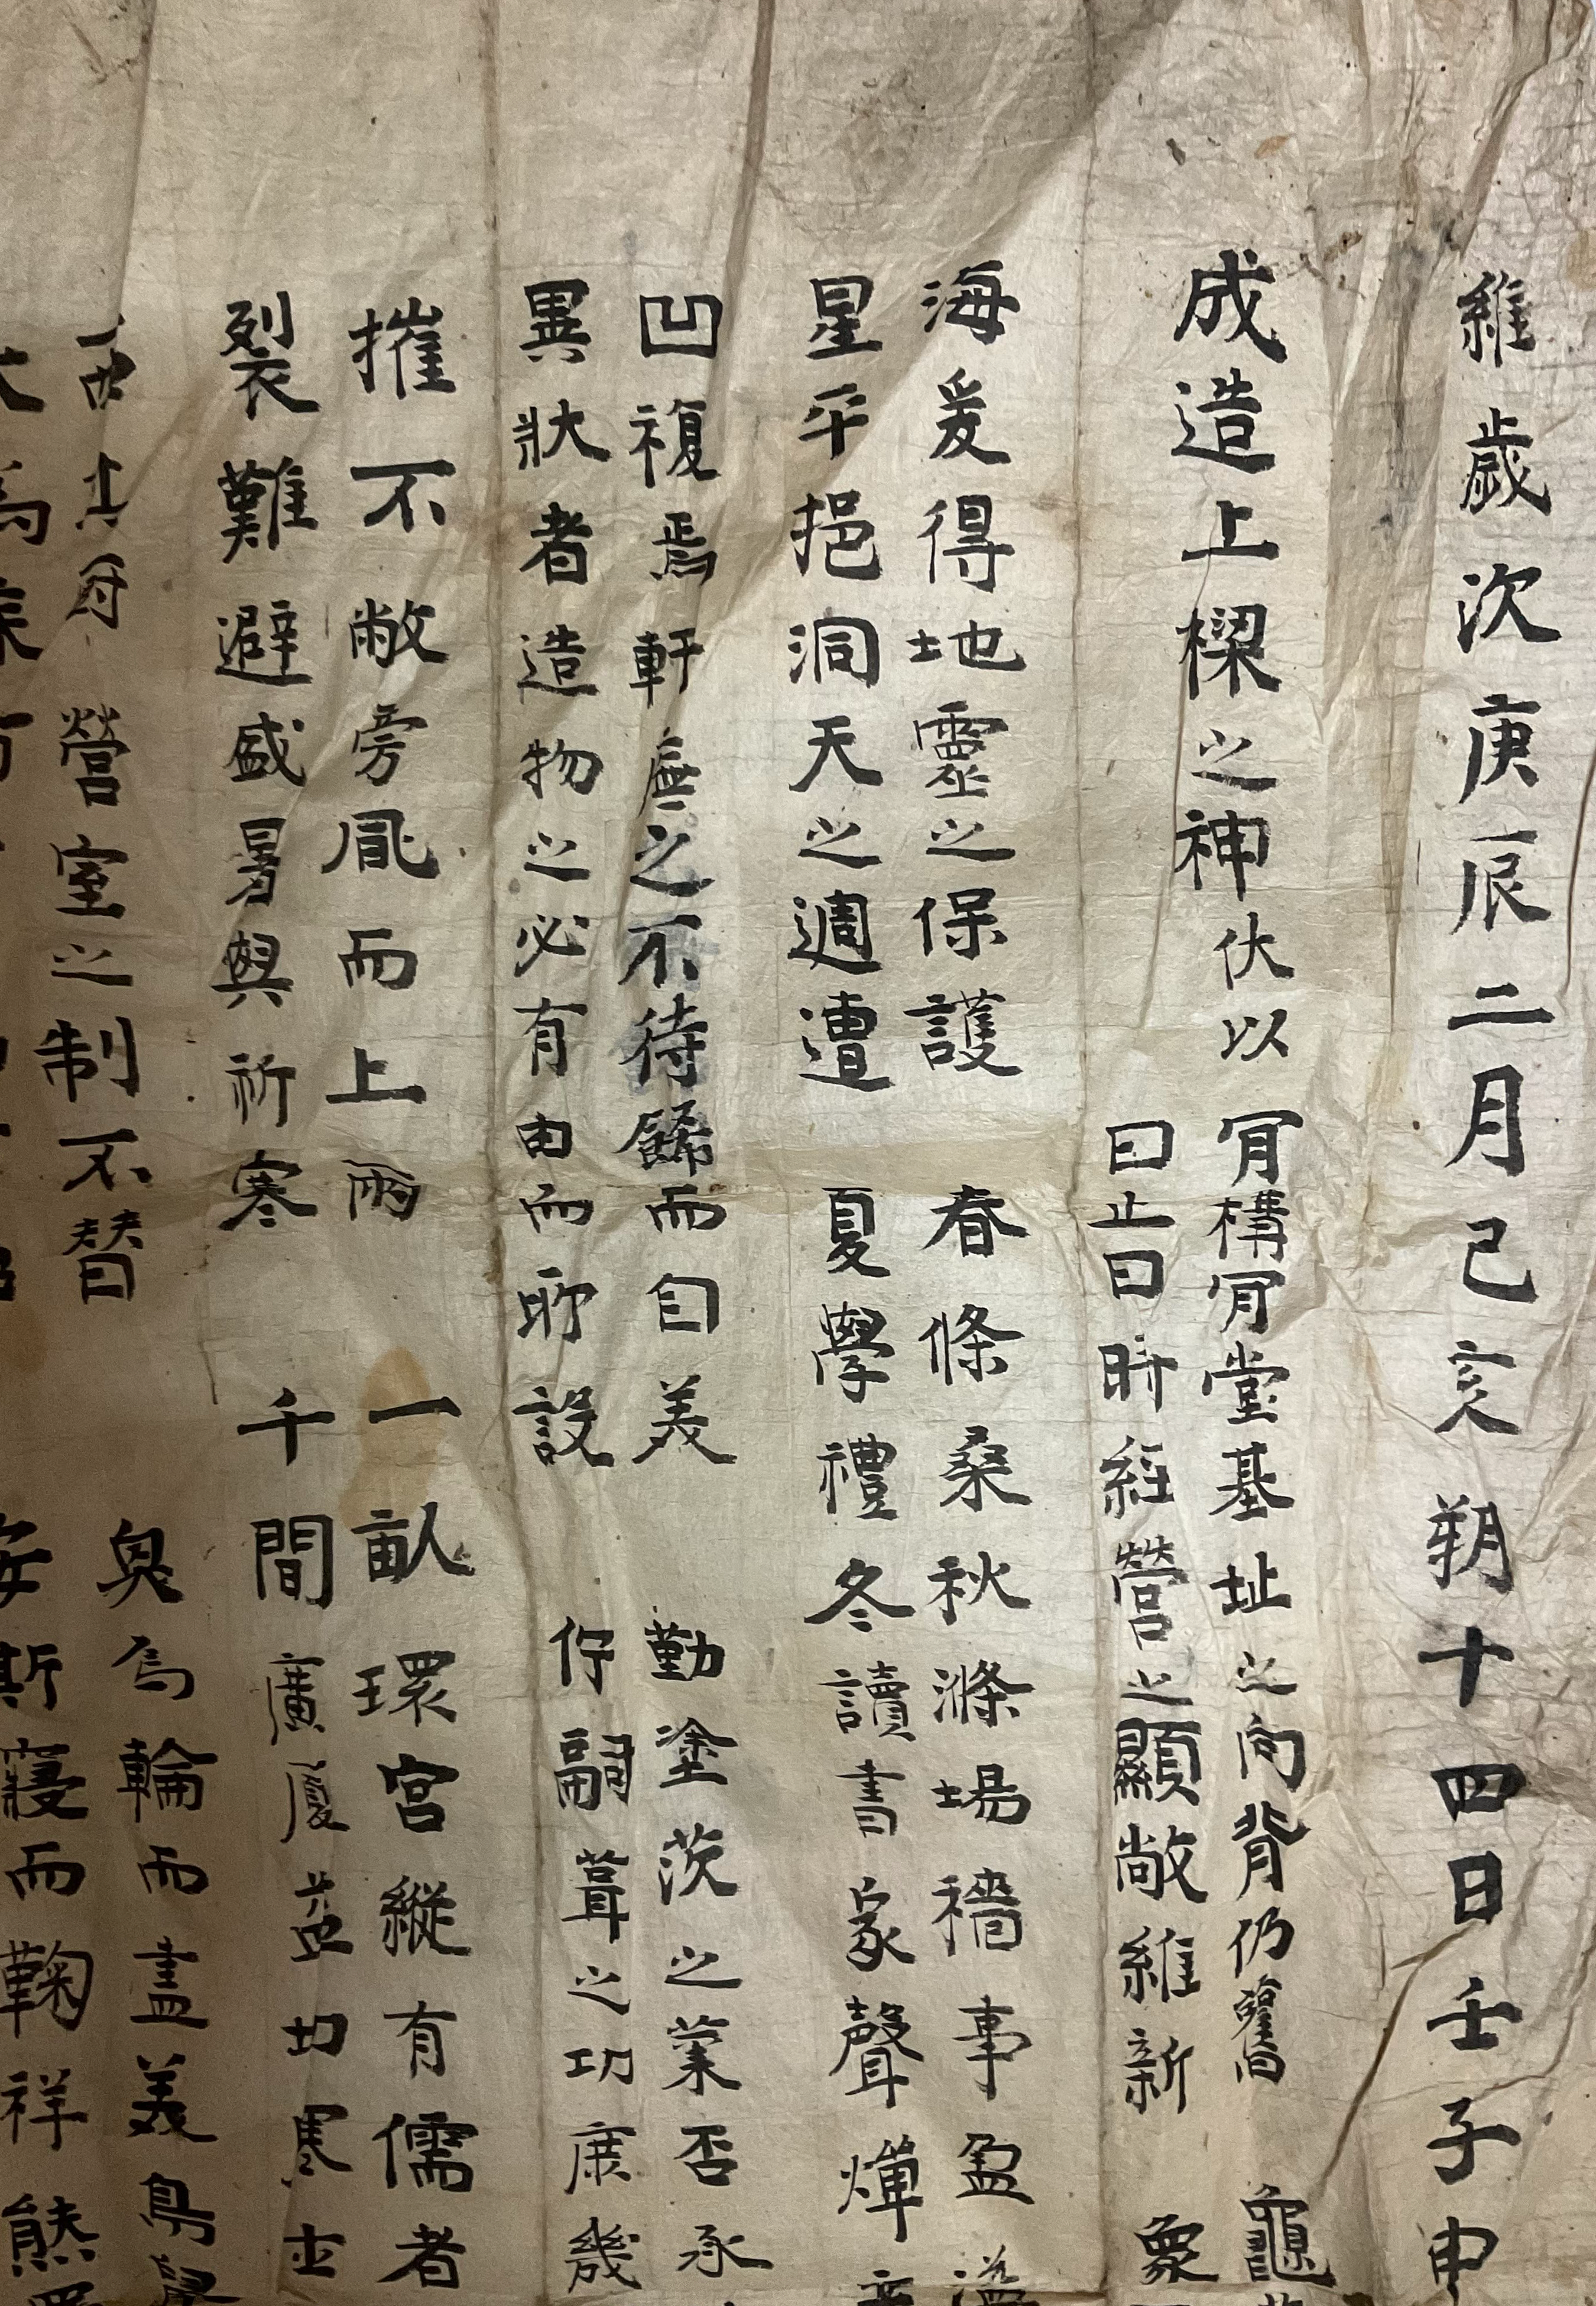 維歲次庚辰二月己亥朔十四日壬子申
成造上樑之神伏以 肎構肎堂基址之向背仍舊 龜
曰止曰時經營之顯敞維新 象
海爰得地靈之保護 春條桑秋滌場穡事盈溢
星平挹洞天之週遭 夏學禮冬讀書家聲燀
凹複焉軒廡之不待餙而自美 勤塗茨之業否承
異狀者造物之必有由而所設 佇嗣葺之功庶幾
摧不敝旁風而上雨 一畝環宮縱有儒者
裂難避盛暑與祈寒 千間廣廈益切寒士
營室之制不替 奐為輪而盡美鳥
安斯寢而鞠祥熊